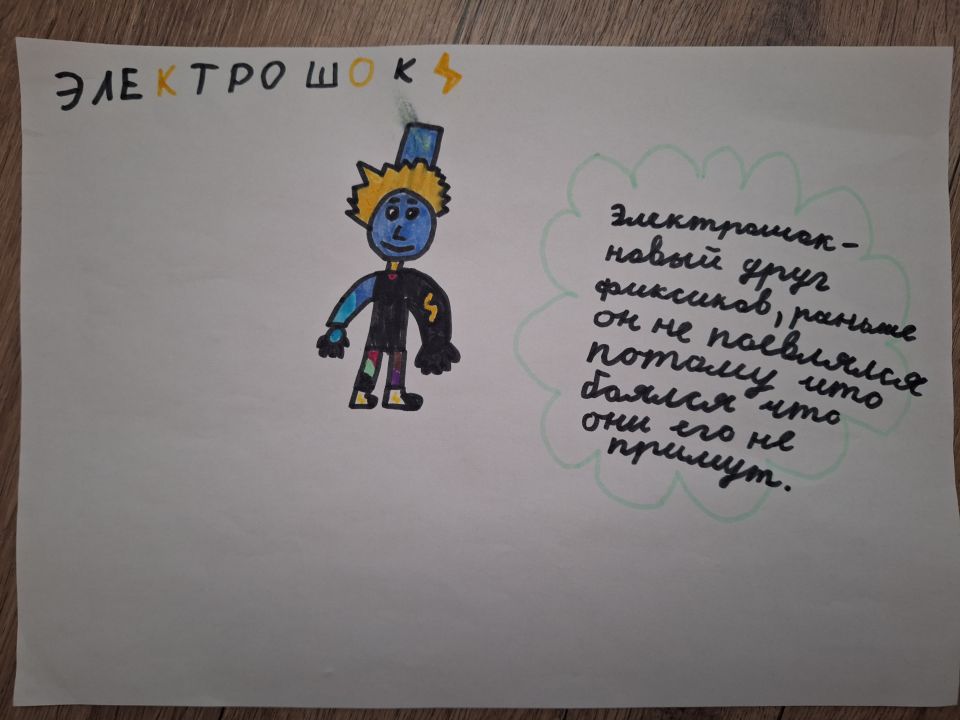 ЭЛЕКТРОШОК
Электрошок-
новый друг
фиксиков, раньше
он не поевлялся
потому что
боялся что
они его не
примут.